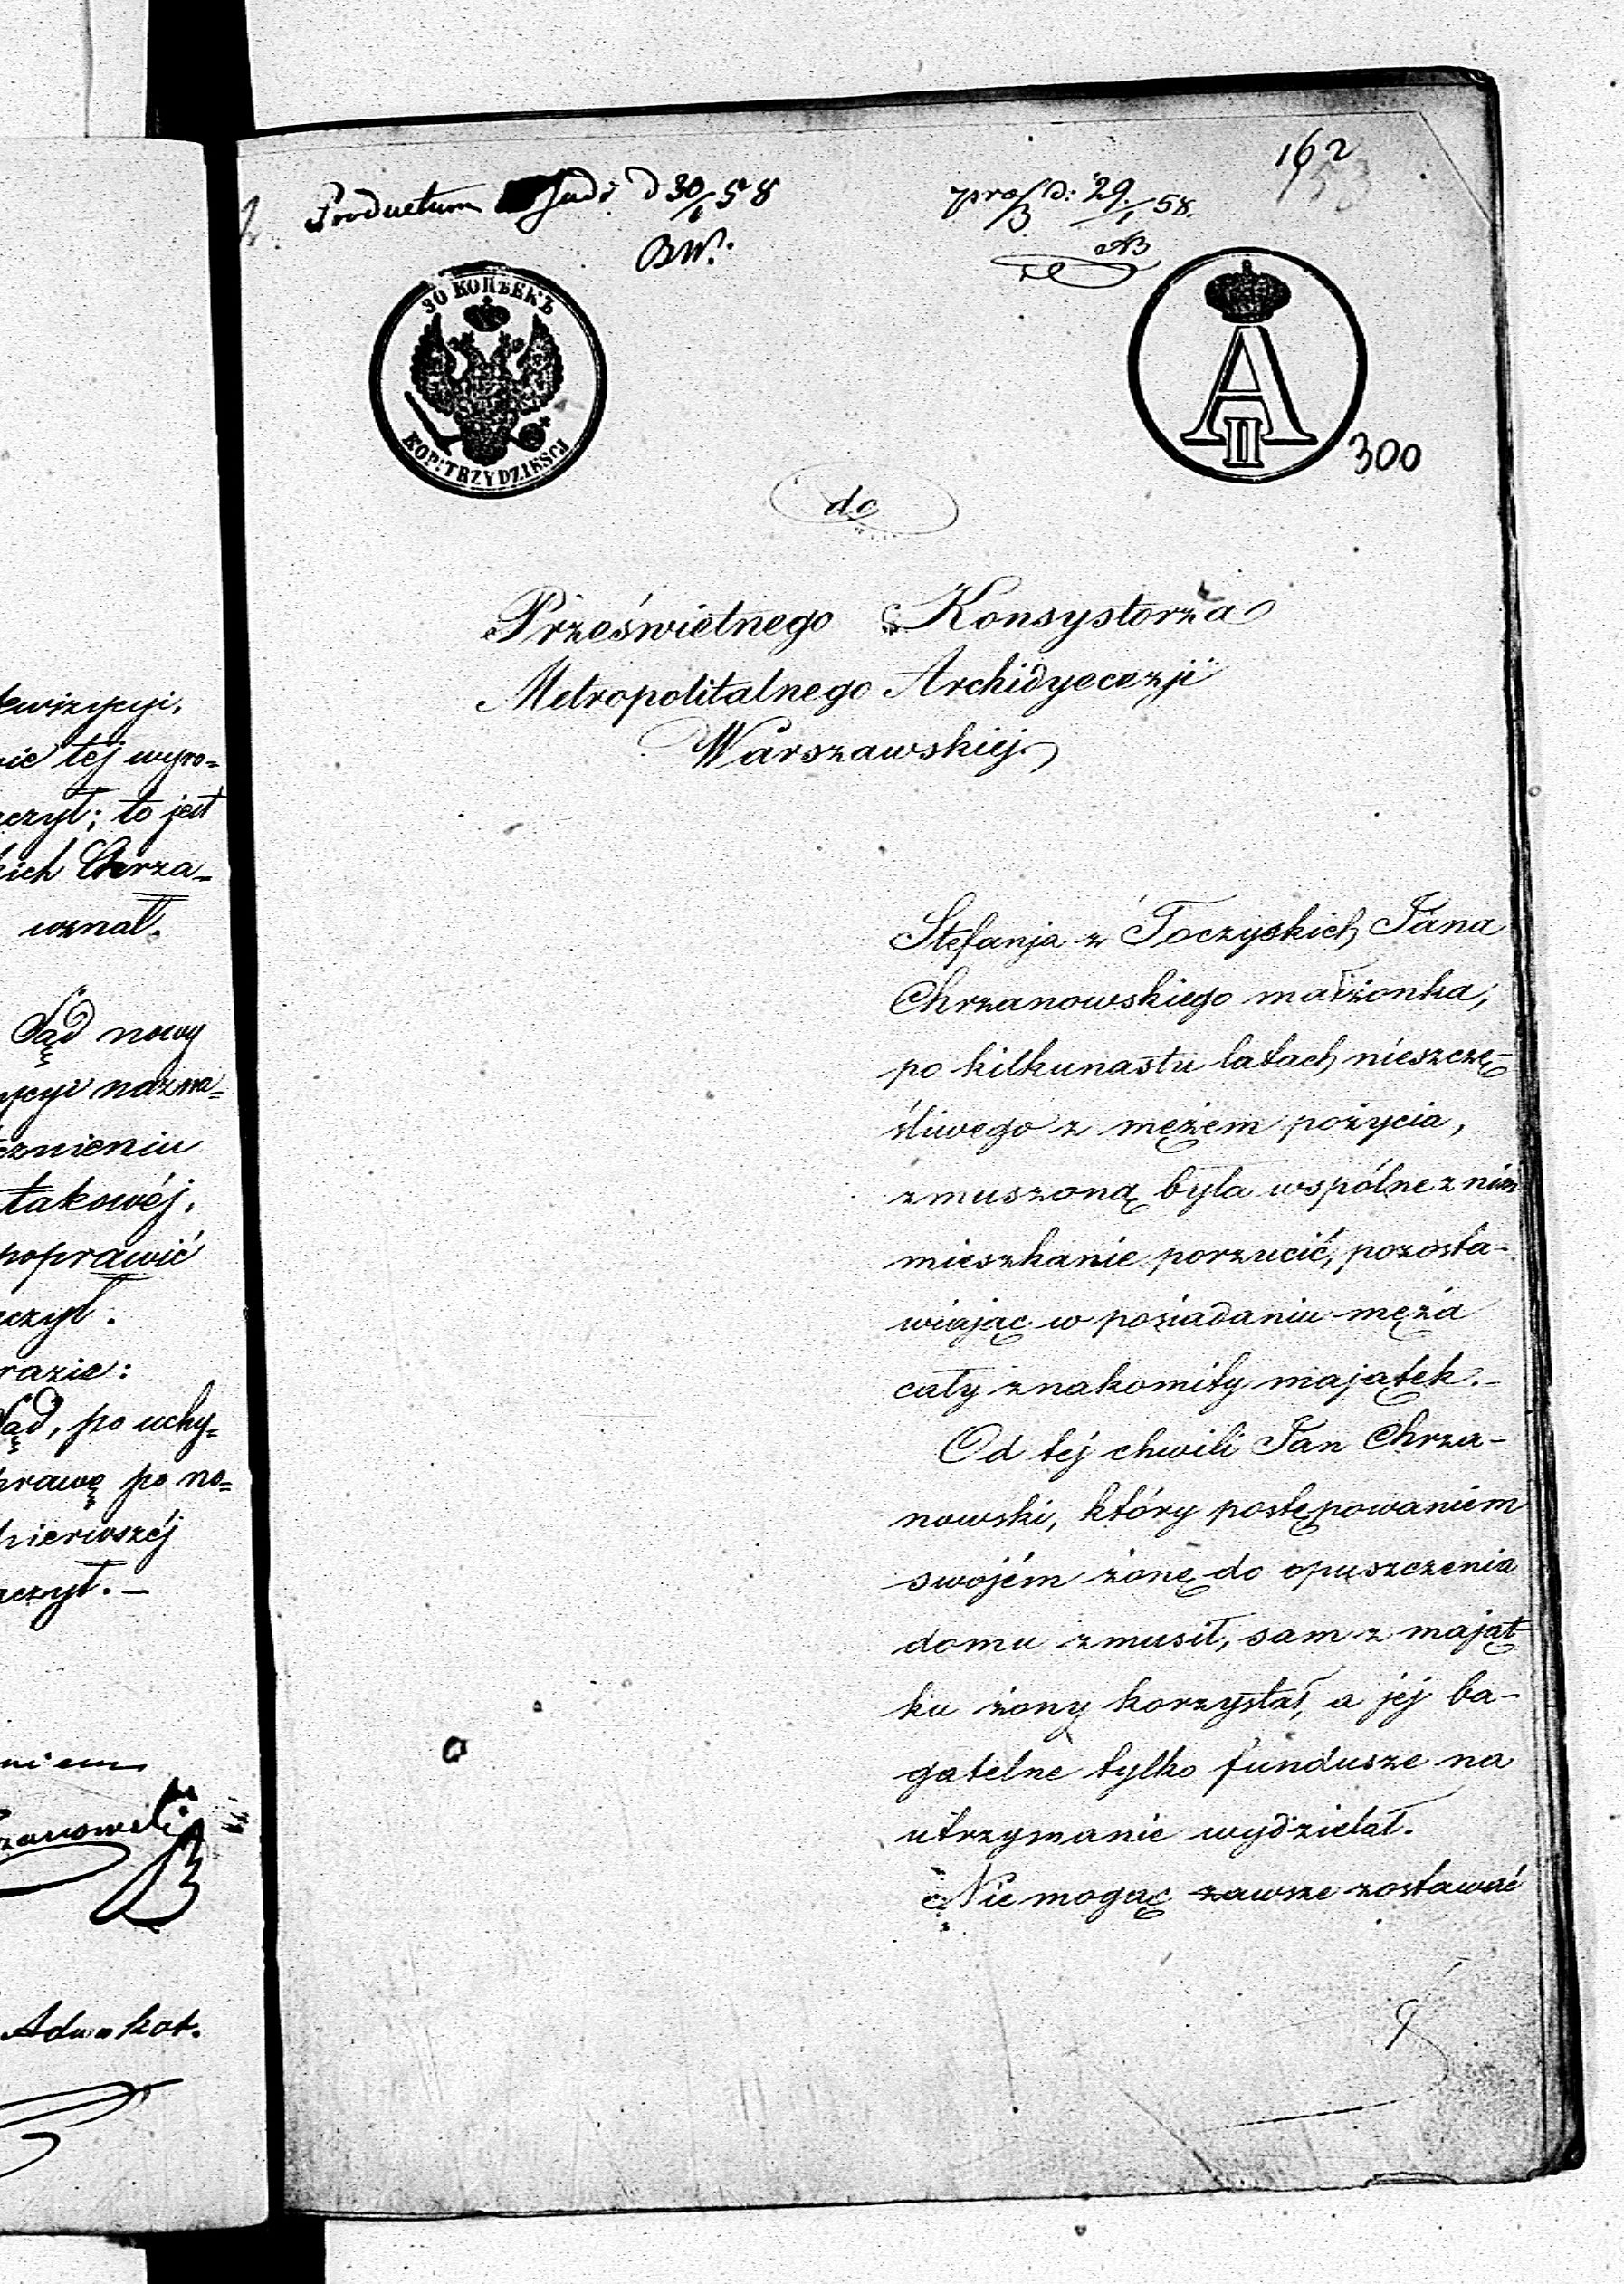 ewizycyi.
nie tej wyro=
czył; to jest
kich Chrza=
uznał.
Sąd nowy
ycyi nazna=
cznieniu
takowéj.
poprawić
czył.
razie:
Sąd, po uchy=
prawę po no=
pierwszéj
aczył. —
niem
zanowski
Adwokat.
162
153
Productum Jud: d 30/1 58
BW.
d: 29/1 58.
AB
30 КОПѢЕКЪ
KOP: TRZYDZIEŚCI
A
II
300
do
Prześwietnego Konsystorza
Metropolitalnego Archidyecezji
Warszawskiej
Stefanja z Toczyskich Jana
Chrzanowskiego małżonka,
po kilkunastu latach nieszczę-
śliwego z mężem pożycia,
zmuszoną była wspólne z nim
mieszkanie porzucić, pozosta-
wiając w posiadaniu męża
cały znakomity majątek. —
Od téj chwili Jan Chrza-
nowski, który postępowaniem
swojém żonę do opuszczenia
domu zmusił, sam z mająt-
ku żony korzystał, a jéj ba-
gatelne tylko fundusze na
utrzymanie wydzielał.
Nie mogąc zawsze zostawać